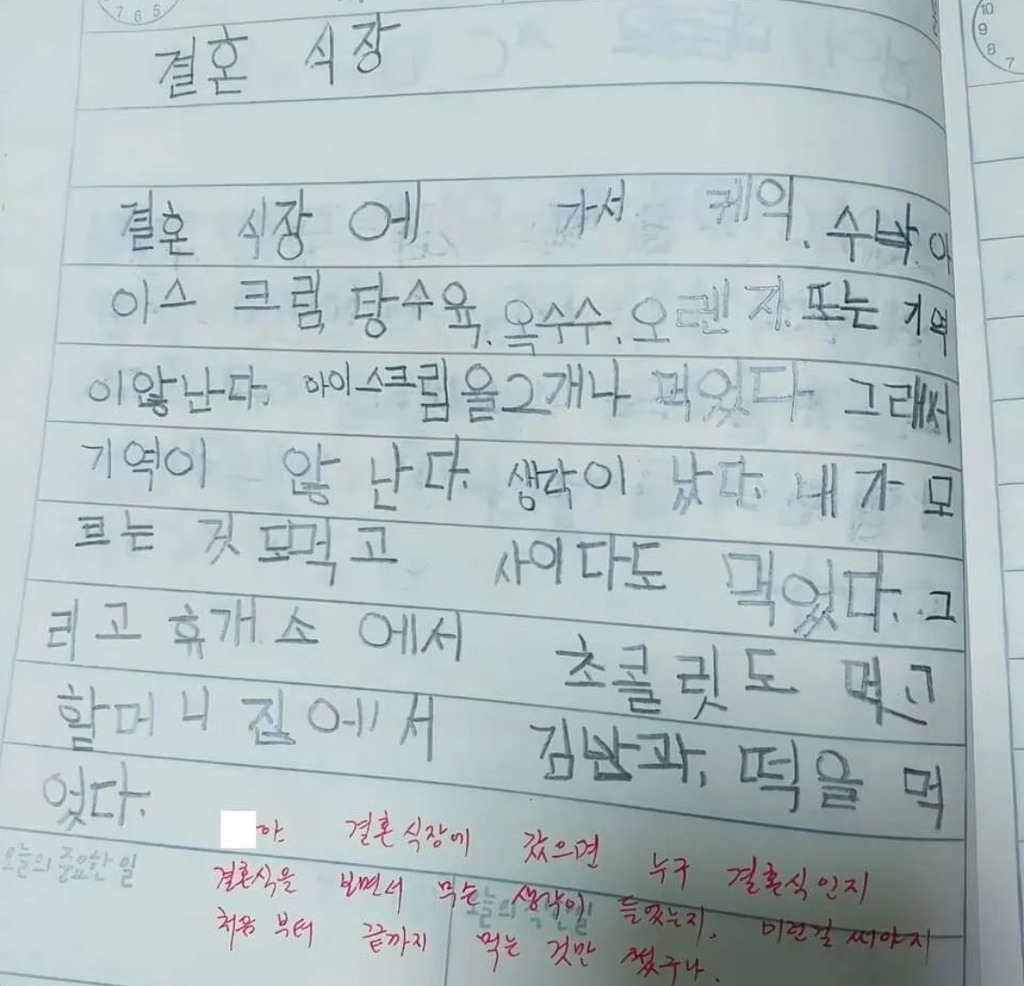 7 6 5
10
9
8
7
결혼 식장
결혼 식장 에 가서 케익, 수박, 아
이스 크림, 탕수육, 옥수수, 오렌 지, 또는 기억
이않난다. 아이스크림을2개나 먹었다. 그래서
기역이 않 난다. 생각이 났다. 내가 모
르는 것 도먹고 사이다도 먹었다. 그
리고 휴개 소 에서 초콜릿도 먹고
할머니 집에서 김밥과, 떡을 먹
었다.
야 결혼식장에 갔으면 누구 결혼식인지
오늘의 중요한 일
결혼식을 보면서 무슨 생각이 들었는지, 이런걸 써야지
처음 부터 끝까지 먹는 것만 썼구나.